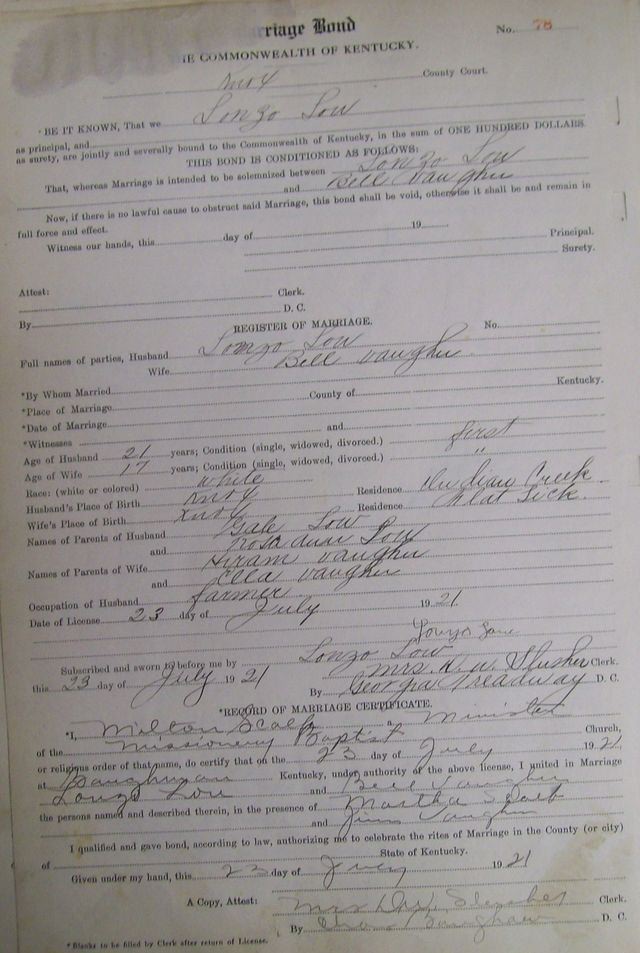 rriage Bond
No. 78
HE COMMONWEALTH OF KENTUCKY.
Knox County Court.
BE IT KNOWN, That we Lonzo Low
as principal, and
as surety, are jointly and severally bound to the Commonwealth of Kentucky, in the sum of ONE HUNDRED DOLLARS.
THIS BOND IS CONDITIONED AS FOLLOWS:
That, whereas Marriage is intended to be solemnized between Lonzo Low
and Bell Vaughn
Now, if there is no lawful cause to obstruct said Marriage, this bond shall be void, otherwise it shall be and remain in
full force and effect.
Witness our hands, this day of 19
Principal.
Surety.
Attest:
Clerk.
By D. C.
REGISTER OF MARRIAGE. No.
Full names of parties, Husband Lonzo Low
Wife Bell Vaughn
*By Whom Married
*Place of Marriage County of Kentucky.
*Date of Marriage
*Witnesses and
Age of Husband 21 years; Condition (single, widowed, divorced.) first
Age of Wife 17 years; Condition (single, widowed, divorced.) "
Race: (white or colored) white
Husband's Place of Birth Knox Residence Indian Creek
Wife's Place of Birth Knox Residence Flat Lick
Names of Parents of Husband Gale Low
and Rosa Ann Low
Names of Parents of Wife Hiram Vaughn
and Ella Vaughn
Occupation of Husband farmer
Date of License 23 day of July 1921
Lonzo Low
Subscribed and sworn to before me by Lonzo Low
this 23 day of July 1921 Mrs. D. W. Slusher Clerk.
By Georgia Treadway D. C.
*RECORD OF MARRIAGE CERTIFICATE.
*I, Milton Scalf a Minister
of the Missionery Baptist Church,
or religious order of that name, do certify that on the 23 day of July 1921
at Baughman Kentucky, under authority of the above license, I united in Marriage
Lonzo Low and Bell Vaughn
the persons named and described therein, in the presence of Martha Scalf
and Jim Vaughn
I qualified and gave bond, according to law, authorizing me to celebrate the rites of Marriage in the County (or city)
of State of Kentucky.
Given under my hand, this 23 day of July 1921
A Copy, Attest: Mrs D. W. Slusher Clerk.
By D. C.
*Blanks to be filled by Clerk after return of License.